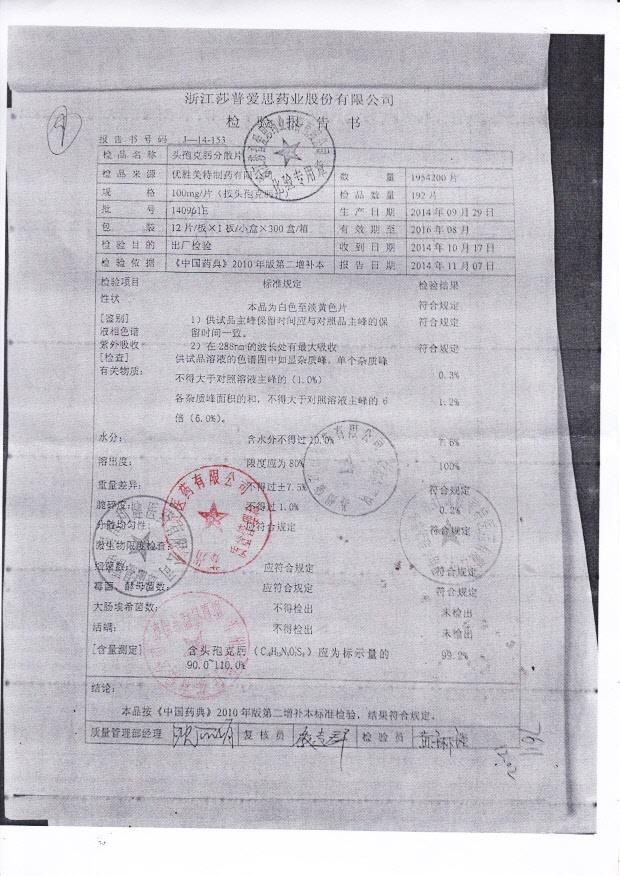 浙江莎普爱思药业股份有限公司
检 验 报 告 书
报 告 书 号 码 J—14-153
检 品 名 称 头孢克肟分散片
检 品 来 源 优胜美特制药有限 数 量 1954200片
规 格 100mg/片（按头孢克肟 检 品 数 量 192 片
批 号 140961E 生 产 日 期 2014 年 09 月 29 日
包 装 12 片/板×1 板/小盒×300 盒/箱 有 效 期 至 2016 年 08 月
检 验 目 的 出厂检验 收 到 日 期 2014 年 10 月 17 日
检 验 依 据 《中国药典》2010 年版第二增补本 报 告 日 期 2014 年 11 月 07 日
检验项目 标准规定 检验结果
性状 本品为白色至淡黄色片 符合规定
[鉴别] 1）供试品主峰保留时间应与对照品主峰的保 符合规定
液相色谱 留时间一致。
紫外吸收 2）在 288nm 的波长处有最大吸收 符合规定
[检查] 供试品溶液的色谱图中如显杂质峰，单个杂质峰
有关物质： 不得大于对照溶液主峰的（1.0%） 0.3%
各杂质峰面积的和，不得大于对照溶液主峰的 6 1.2%
倍（6.0%）。
水分： 含水分不得过 10.0% 7.6%
溶出度： 限度应为 80% 100%
重量差异： 不得过±7.5% 符合规定
脆碎度： 不得过 1.0% 0.2%
分散均匀性： 应符合规定 符合规定
微生物限度检查：
细菌数： 应符合规定 符合规定
霉菌、酵母菌数： 应符合规定 符合规定
大肠埃希菌数： 不得检出 未检出
活螨： 不得检出 未检出
[含量测定] 含头孢克肟 应为标示量的 99.2%
90.0~110.0%
结论：
本品按《中国药典》2010 年版第二增补本标准检验，结果符合规定。
质量管理部经理 复 核 员 检 验 员